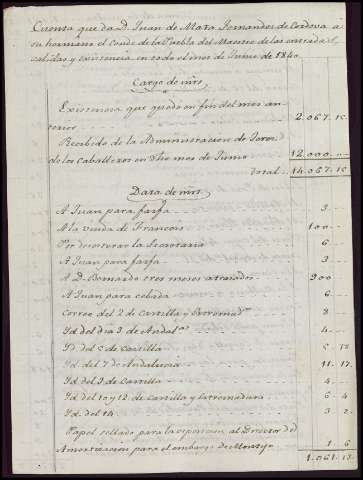 Cuenta que da D. Juan de Mata Fernandez de Cordova á
su hermano el Conde de la Puebla del Maestre de las entradas,
salidas y existencia en todo el mes de Junio de 1840
Cargo de mrs.
Existencia que quedó en fin del mes an-
terior 2.067. 15
Recibido de la Administracion de Jerez
de los Caballeros en dho mes de Junio 12.000
Total 14.067. 15
Data de mrs.
A Juan para farfa 3
A la viuda de Francois 100
Por desesterar la Secretaria 6
A Juan para farfa 3
A D. Bernardo tres meses atrasados 900
A Juan para cebada 6
Correo del 2 de Castilla y Extremad.ª 8
Yd del dia 3 de Andal.ª 4
Yd. del 5 de Castilla 5 12
Yd. del 7 de Andalucia 11 17
Yd. del 9 de Castilla 4
Yd. del 10 y 12 de Castilla y Extremadura 6 4
Yd. del 14 3 2
Papel sellado para la esposicion al Director de
Amortizacion para el embargo de Montijo 1 6
1.061. 13